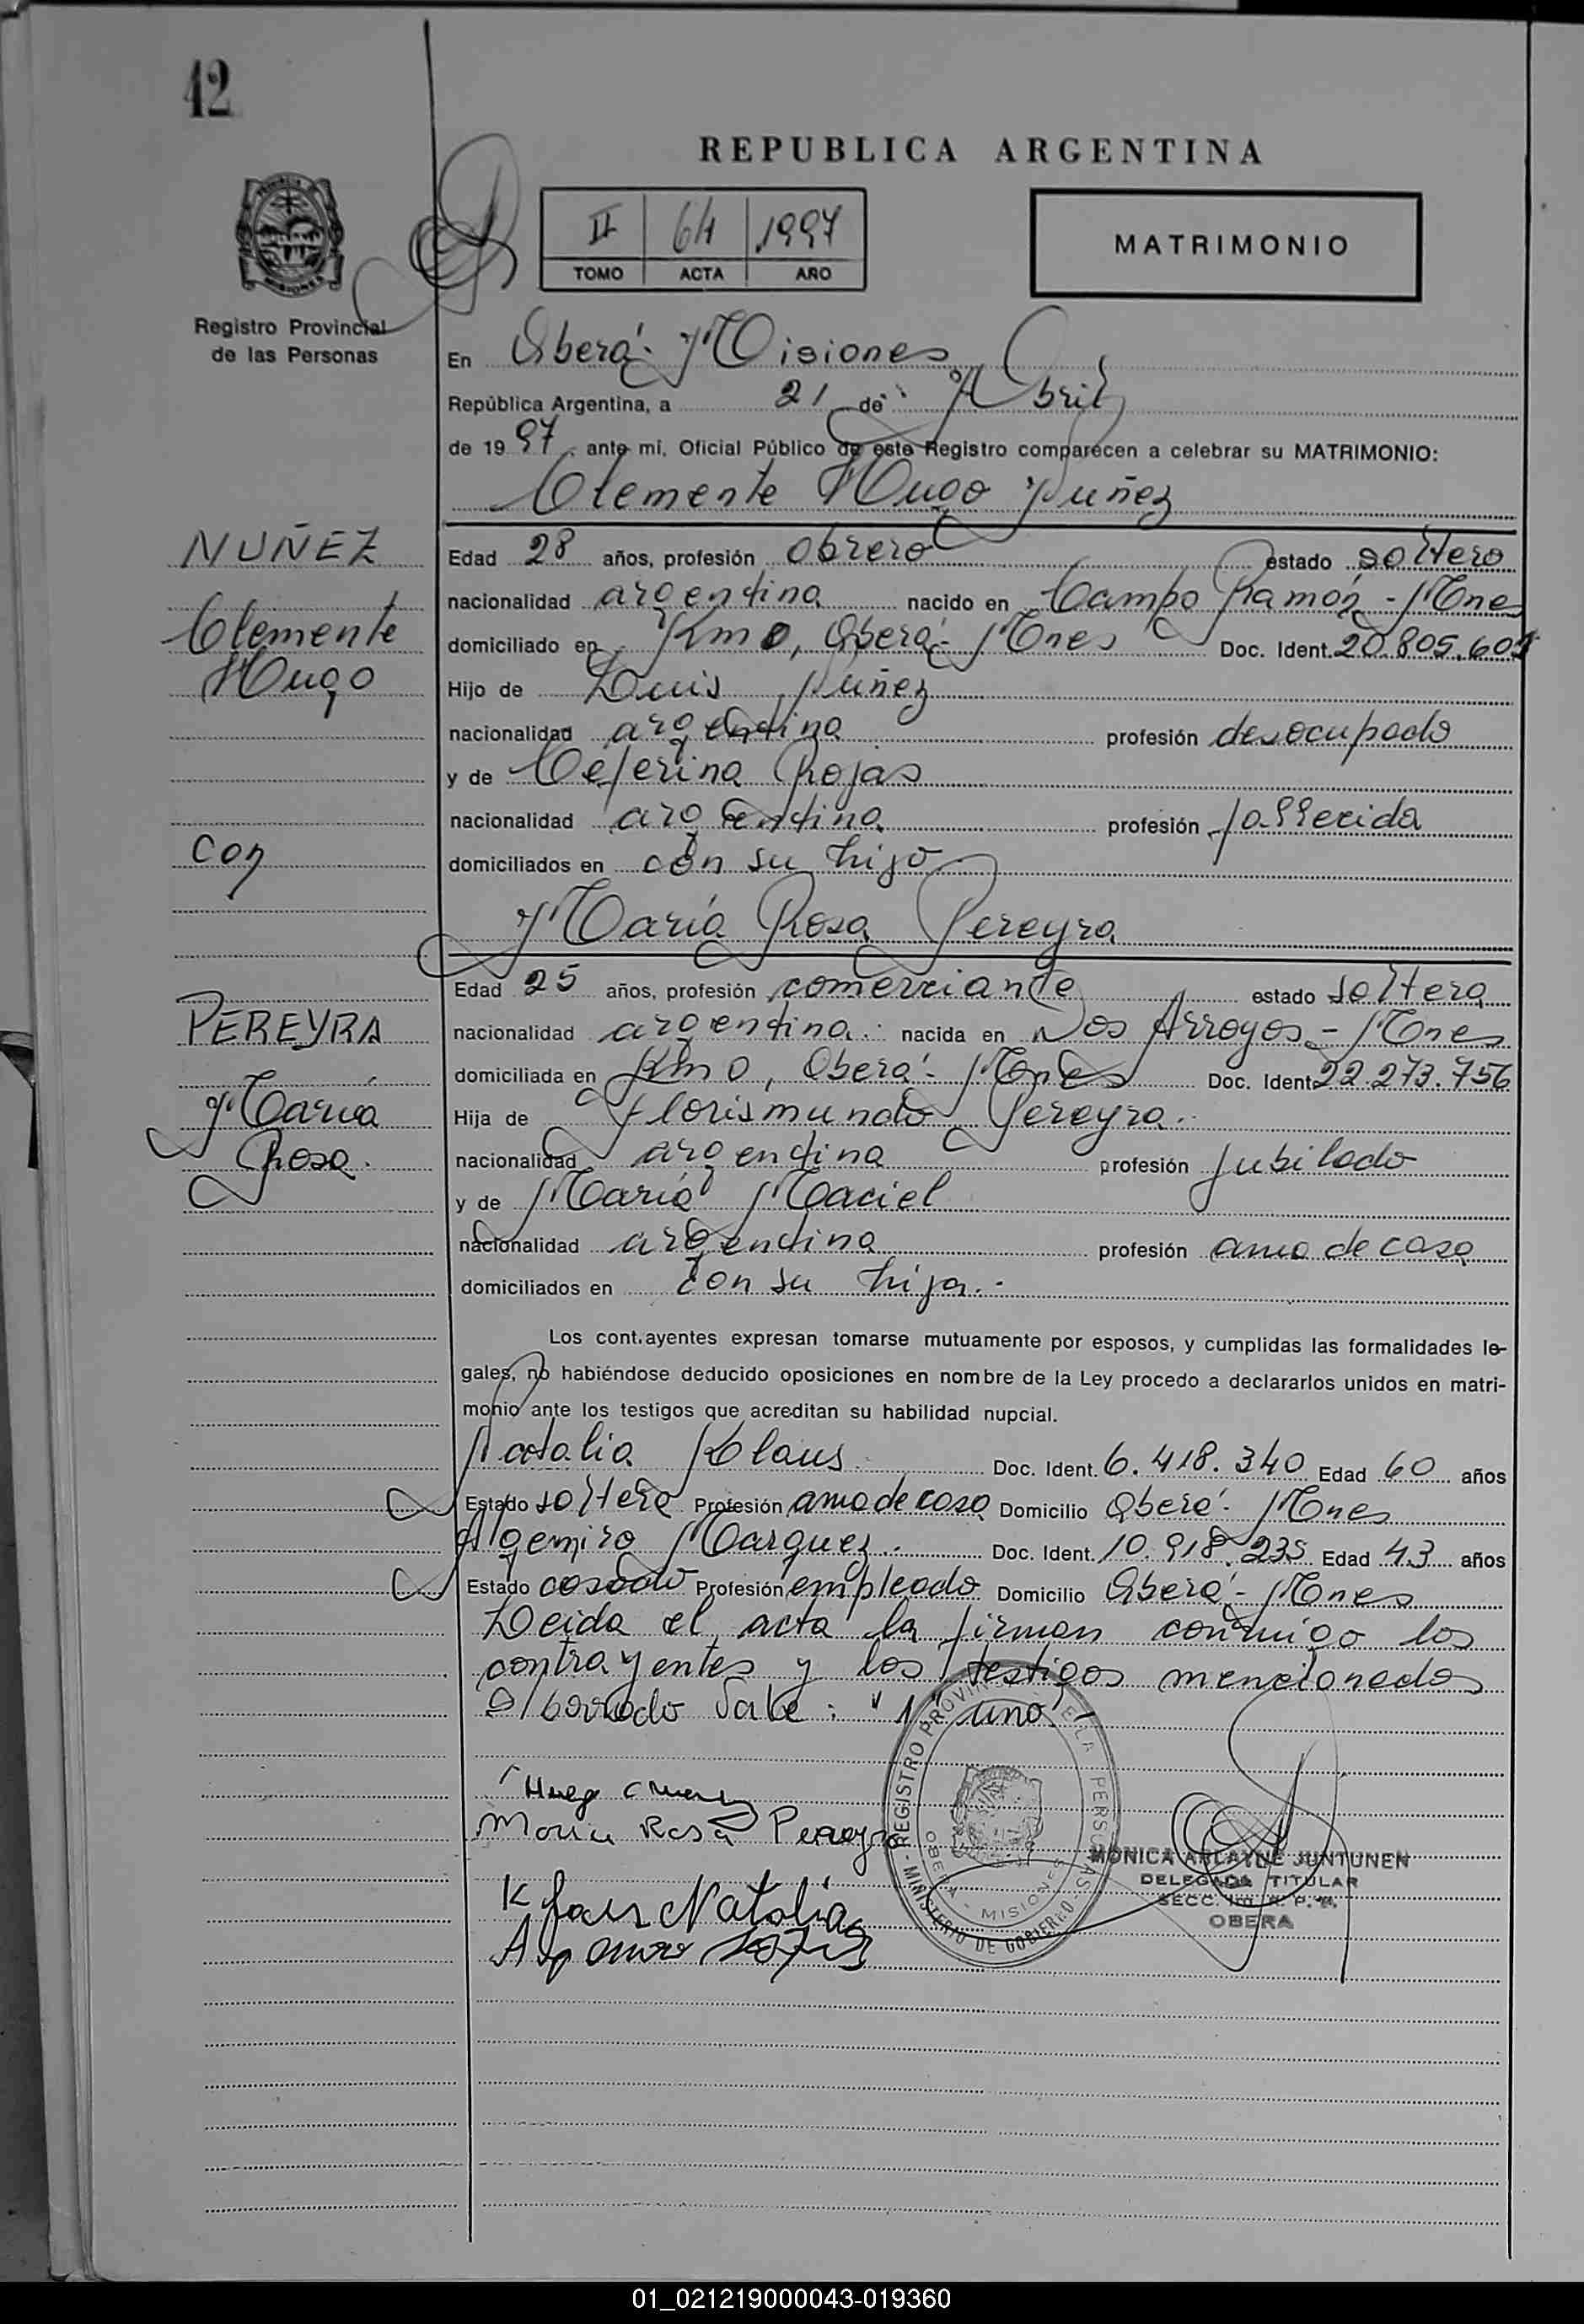 12
REPUBLICA ARGENTINA
II 64 1997
TOMO ACTA AÑO
MATRIMONIO
MISIONES
Registro Provincial
de las Personas
En Oberá - Misiones
República Argentina, a 21 de Abril
de 1997, ante mi, Oficial Público de este Registro comparecen a celebrar su MATRIMONIO:
Clemente Hugo Nuñez
NUÑEZ
Clemente
Hugo
con
PEREYRA
María
Rosa.
Edad 28 años, profesión obrero estado soltero
nacionalidad argentina nacido en Campo Ramón - Mnes
domiciliado en Km 0, Oberá - Mnes Doc. Ident. 20.805.601
Hijo de Luis Nuñez
nacionalidad argentina profesión desocupado
y de Ceferina Rojas
nacionalidad argentina profesión fallecida
domiciliados en con su hijo
María Rosa Pereyra
Edad 25 años, profesión comerciante estado soltera
nacionalidad argentina. nacida en Dos Arroyos - Mnes
domiciliada en Km 0, Oberá - Mnes Doc. Ident. 22.273.756
Hija de Florismundo Pereyra.
nacionalidad argentina profesión jubilado
y de María Maciel
nacionalidad argentina profesión ama de casa
domiciliados en con su hija.-
Los cont.ayentes expresan tomarse mutuamente por esposos, y cumplidas las formalidades le-
gales, no habiéndose deducido oposiciones en nombre de la Ley procedo a declararlos unidos en matri-
monio ante los testigos que acreditan su habilidad nupcial.
Natalia Klaus Doc. Ident. 6.418.340 Edad 60 años
Estado soltera Profesión ama de casa Domicilio Oberá - Mnes
Algemiro Marquez. Doc. Ident. 10.918.235 Edad 43 años
Estado casado Profesión empleado Domicilio Oberá - Mnes
Leida el acta la firman conmigo los
contrayentes y los testigos mencionados
S/borrado Vale: "1" uno.-
Hugo
Maria Rosa Pereyra
Klaus Natalia
REGISTRO PROVINCIAL DE LA PERSONAS - MINISTERIO DE GOBIERNO -
OBERA - MISIONES
MONICA ARLAYNE JUNTUNEN
DELEGADA TITULAR
SECC. 1ra R. P. P.
OBERA
01_021219000043-019360